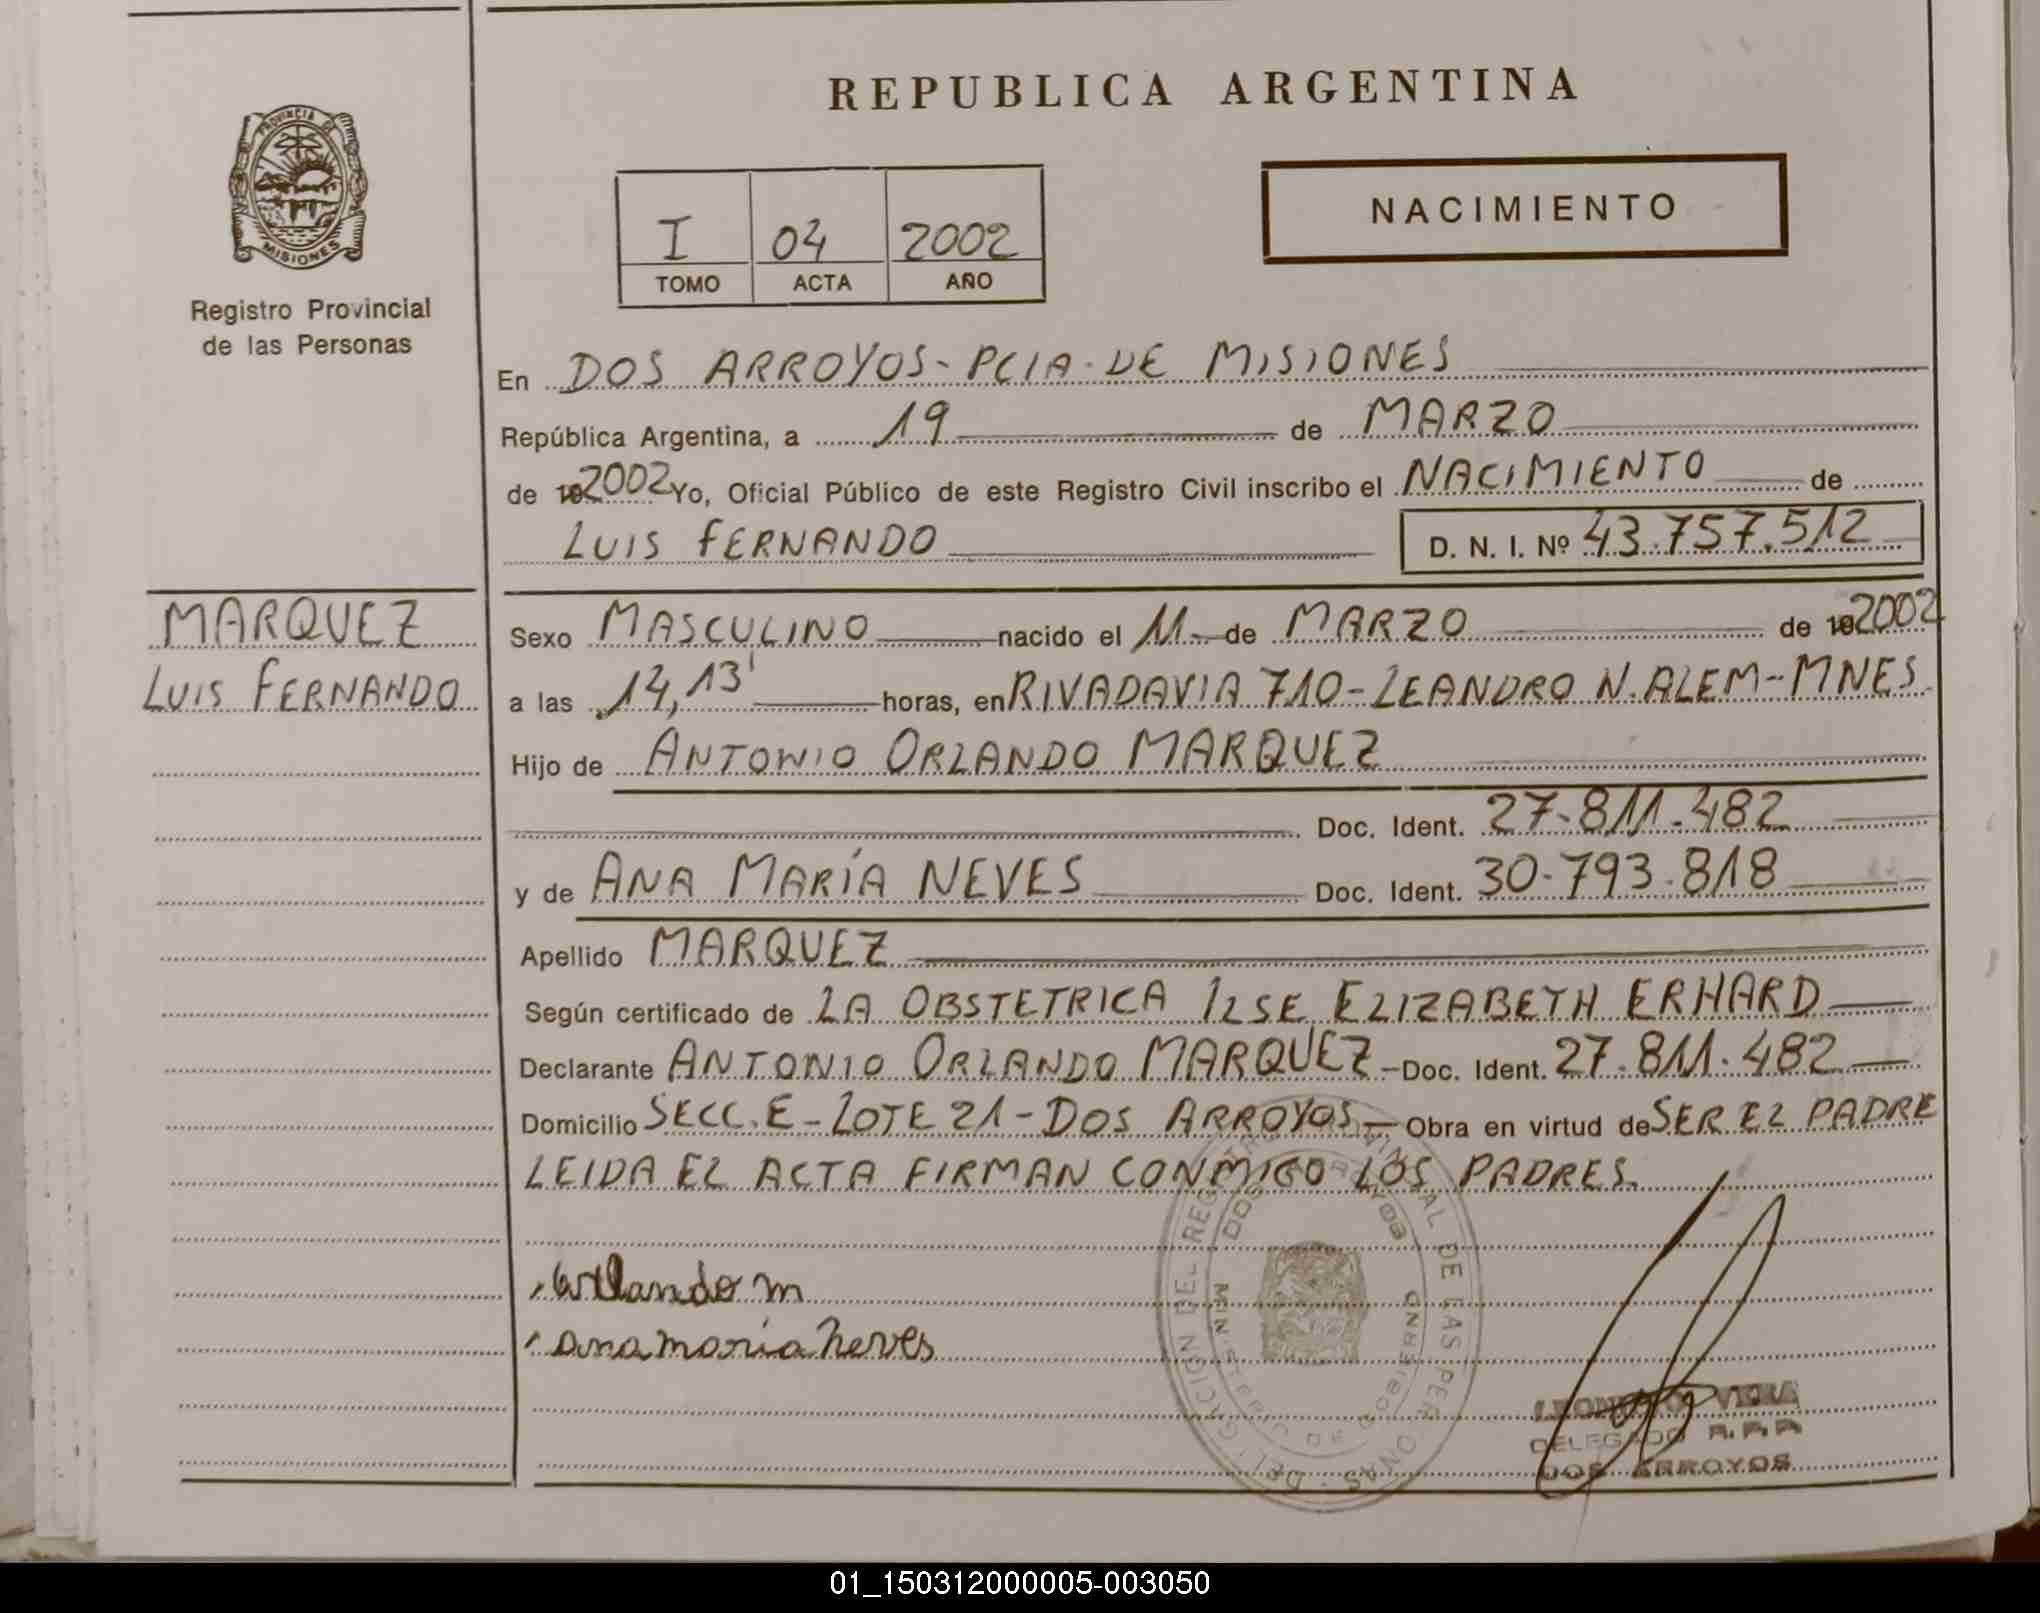 REPUBLICA ARGENTINA
PROVINCIA DE
MISIONES
Registro Provincial
de las Personas
NACIMIENTO
I 04 2002
TOMO ACTA AÑO
En DOS ARROYOS - PCIA. DE MISIONES
República Argentina, a 19 de MARZO
de 192002 Yo, Oficial Público de este Registro Civil inscribo el NACIMIENTO de
LUIS FERNANDO D. N. I. Nº 43.757.512
MARQUEZ
LUIS FERNANDO
Sexo MASCULINO nacido el 11 de MARZO de 192002
a las 14,13' horas, en RIVADAVIA 710 - LEANDRO N. ALEM - MNES
Hijo de ANTONIO ORLANDO MARQUEZ
Doc. Ident. 27.811.482
y de ANA MARÍA NEVES Doc. Ident. 30.793.818
Apellido MARQUEZ
Según certificado de LA OBSTETRICA ILSE ELIZABETH ERHARD
Declarante ANTONIO ORLANDO MARQUEZ - Doc. Ident. 27.811.482
Domicilio SECC. E - LOTE 21 - DOS ARROYOS - Obra en virtud de SER EL PADRE
LEIDA EL ACTA FIRMAN CONMIGO LOS PADRES.
Orlando m
ana maria neves
DELEGACION DEL REGISTRO PROVINCIAL DE LAS PERSONAS
DOS ARROYOS
MINISTERIO DE GOBIERNO
VERA
DELEGADO R.P.P
DOS ARROYOS
01_150312000005-003050